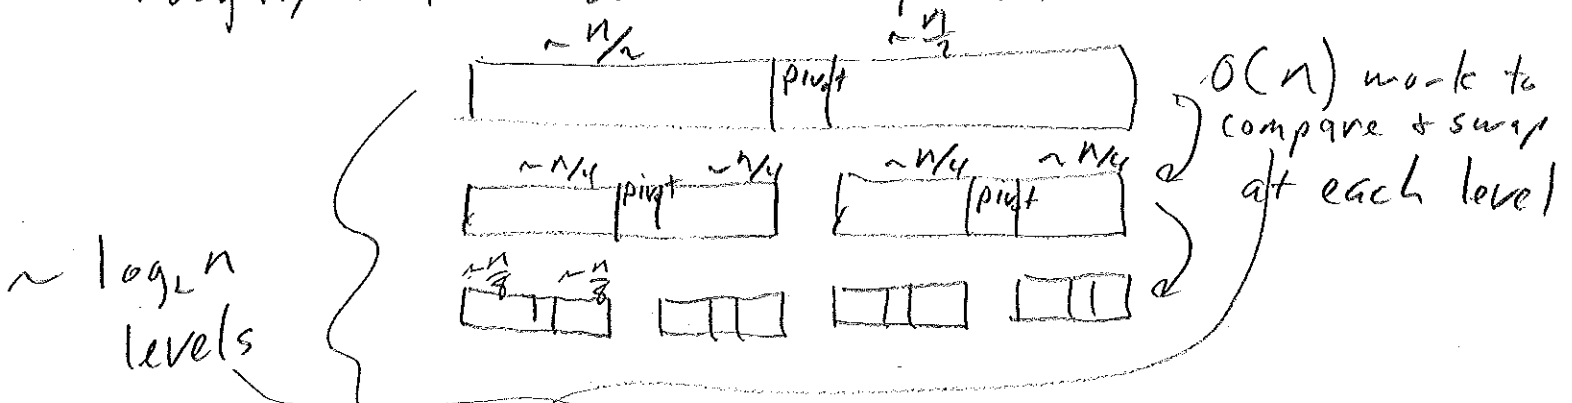 ~ n/2 ~ n/2
pivot
O(n) work to
compare & swap
at each level
~ n/4 ~ n/4 ~ n/4 ~ n/4
pivot pivot
~ n/8 ~ n/8
~ log₂ n
levels